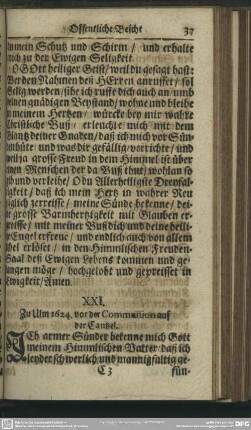 Offentliche Beicht 37
mein Schutz und Schirm / und erhalte
mich zu der Ewigen Seligkeit.
O GOtt heiliger Geist / weil du gesagt hast:
Wer den Nahmen deß HErren anruffet / sol
selig werden / sihe ich ruffe dich auch an umb
einen gnädigen Beystand / wohne und bleibe
in meinem Hertzen / würcke bey mir wahre
Christliche Buß / erleuchte mich mit dem
Glantz deiner Gnaden / daß ich mich vor Sünden
hüte / und was dir gefällig verrichte / und
weil ja grosse Freud in dem Himmel ist über
einen Menschen der da Buß thut / wohlan so
hilff und verleihe / O du Allerheiligste Dreyfaltigkeit
/ daß ich mein Hertz in wahrer Reu
zerreisse / meine Sünde bekenne / deine
grosse Barmhertzigkeit mit Glauben ergreiffe
/ mit meiner Buß dich und deine heilige
Engel erfreue / und endlich auch von allem
erlöset / in den Himmlischen Freuden-
Saal deß Ewigen Lebens kommen und gelangen
möge / hochgelobt und gepreisset in
Ewigkeit / Amen.
XXI.
Zu Ulm 1624. vor der Communion auf
der Cantzel.
ICh armer Sünder bekenne mich Gott
meinem Himmlischen Vatter daß ich
leyder schwerlich und mannigfaltig ge-
C 3 sün-